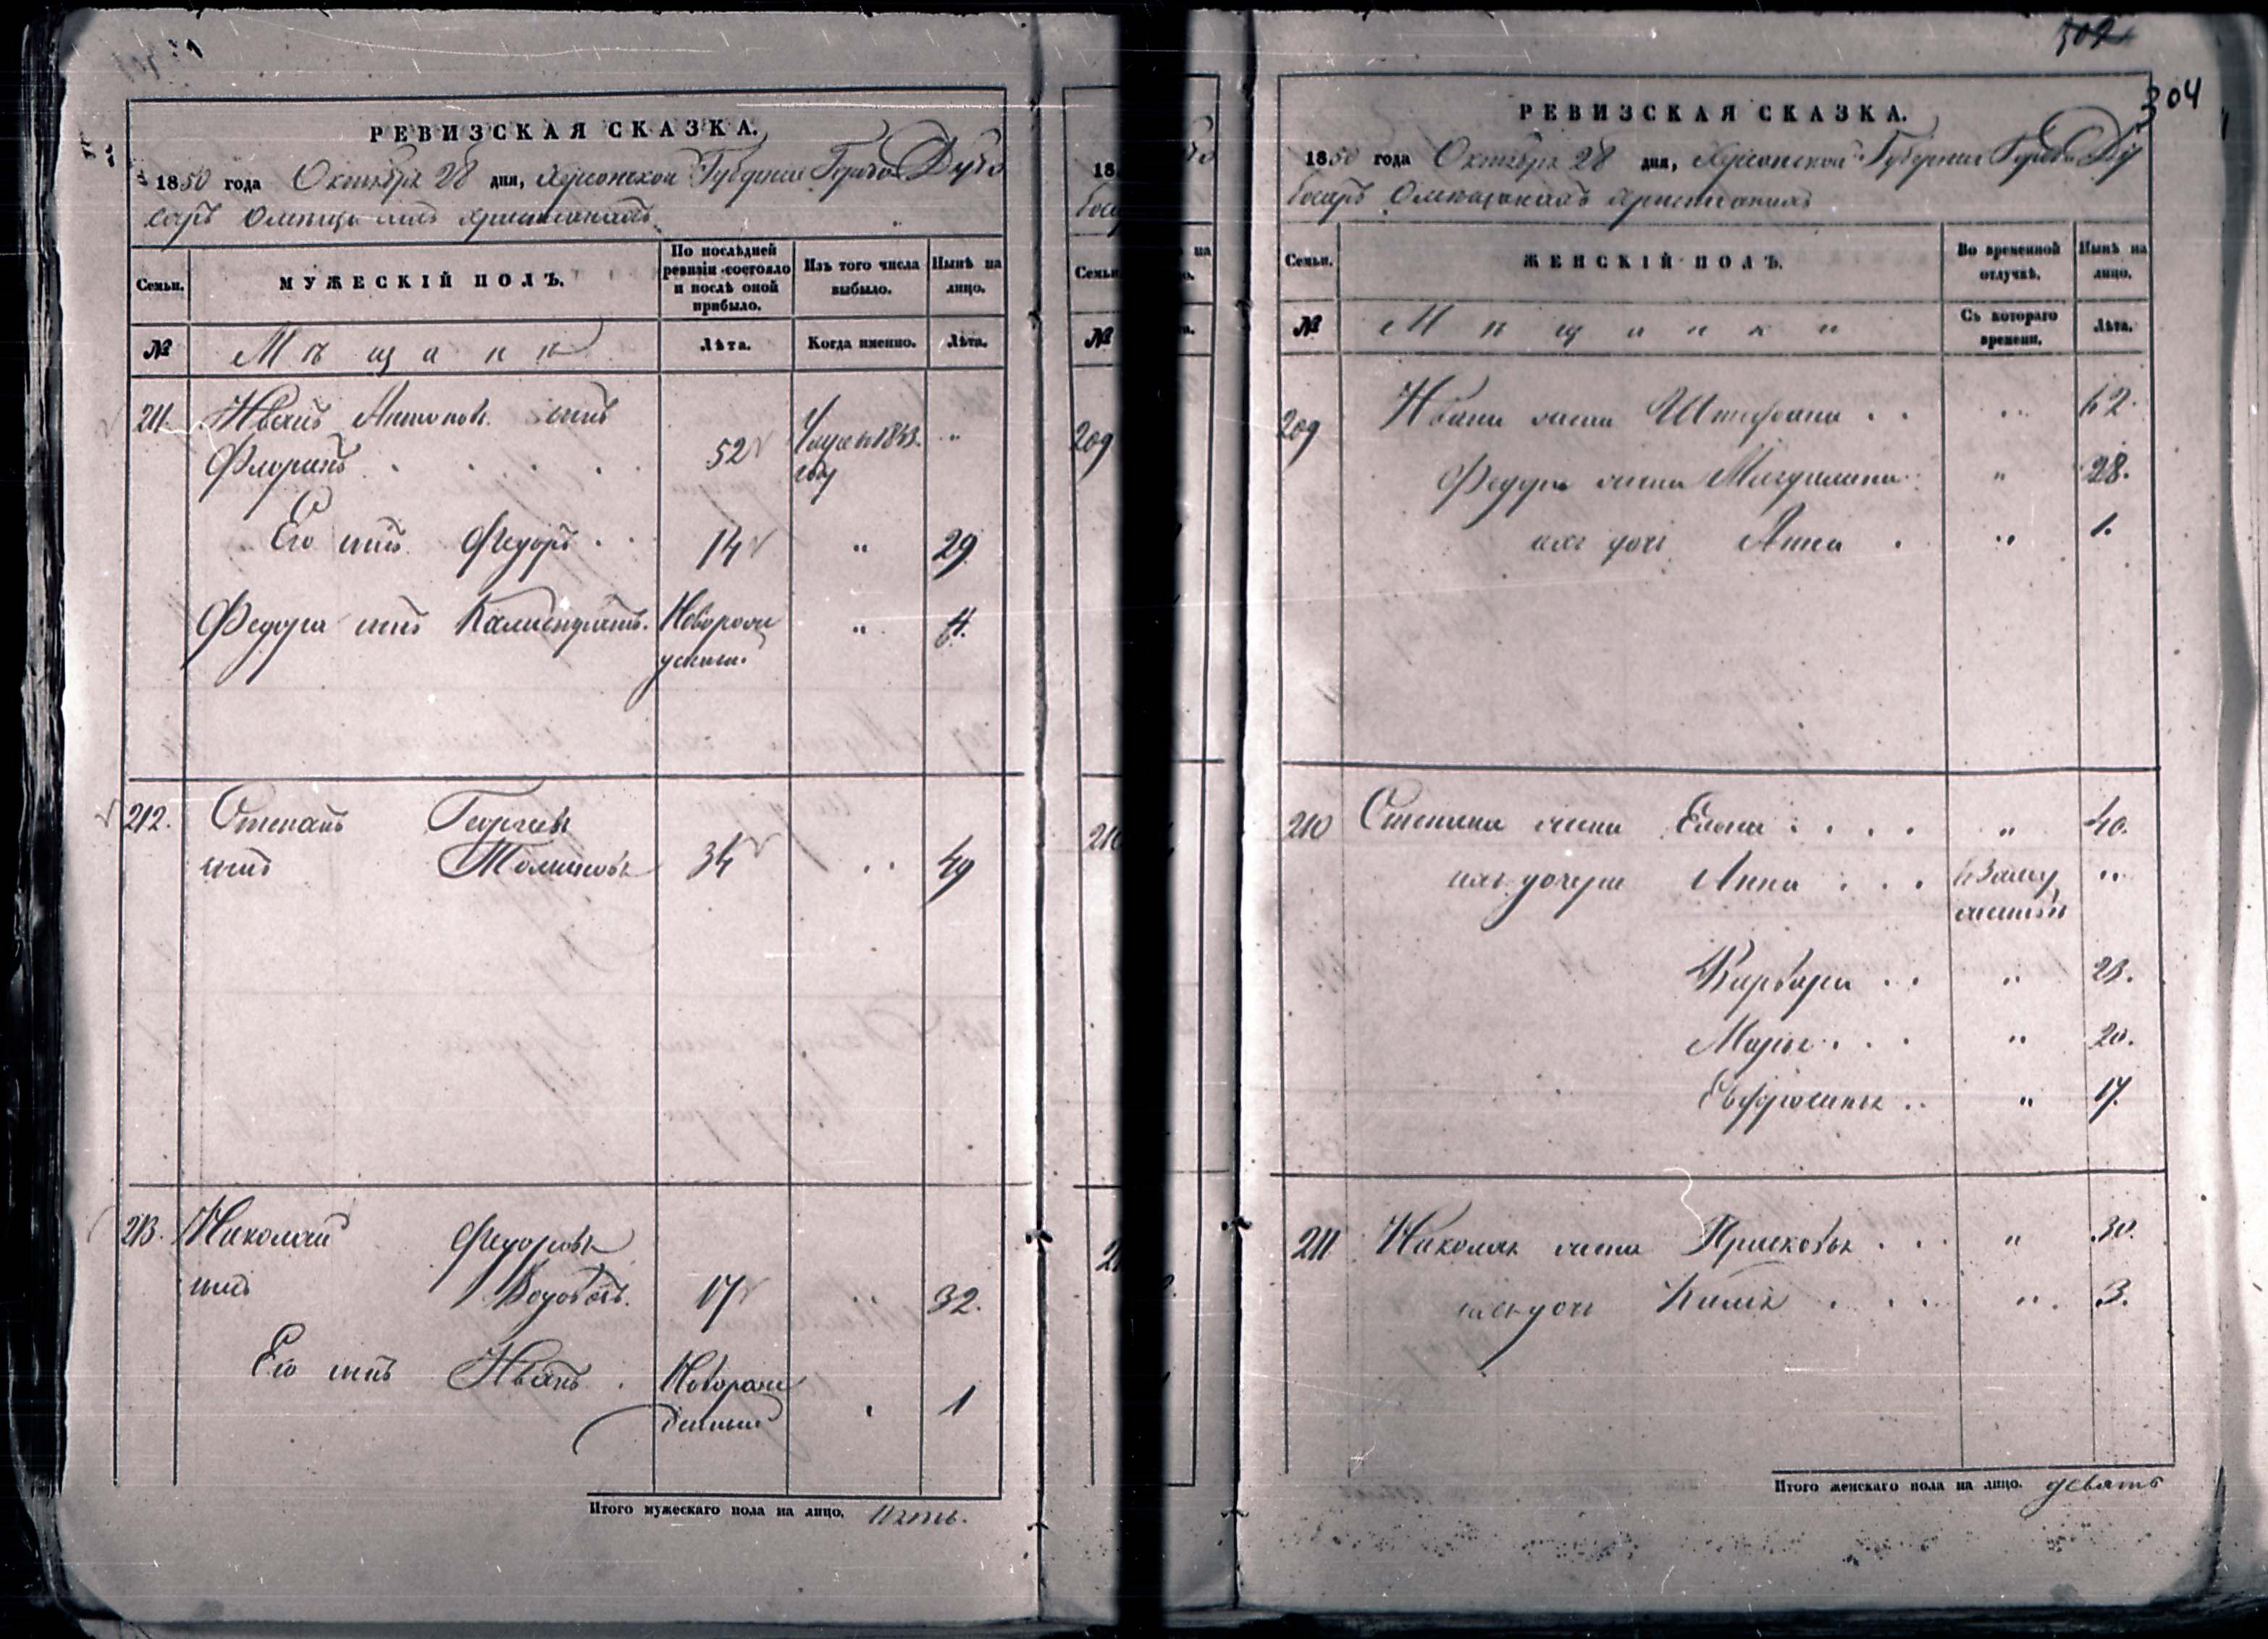 РЕВИЗСКАЯ СКАЗКА.
1850 года Октября 28 дня, Херсонской Губернии Города Дубо
саръ О мещанахъ христианахъ
Семьи.
МУЖЕСКІЙ ПОЛЪ.
По послѣдней ревизіи состояло и послѣ оной прибыло.
Изъ того числа выбыло.
Нынѣ на лицо.
№
Мѣщане
Лѣта.
Когда именно.
Лѣта.
211. Иванъ Антоновъ сынъ
Флоринъ . . . . . 52 Умре въ 1843. году "
Его сынъ Федоръ . . 14 " 29
Федора сынъ Новорож "
денный
212. Степанъ Георгіевъ
сынъ 34 " 49
213. Николай Федоровъ
сынъ 17 32.
Его сынъ Иванъ . Новорож
денный " 1
Итого мужескаго пола на лицо. Пять.
18
Семьи
на
№
209
210
302
304
РЕВИЗСКАЯ СКАЗКА.
1850 года Октября 28 дня, Херсонской Губернии Города Ду
босаръ О мещанкахъ христианкахъ
Семьи.
ЖЕНСКІЙ ПОЛЪ.
Во временной отлучкѣ.
Нынѣ на лицо.
№
Мѣщанки
Съ котораго времени.
Лѣта.
209 Ивана жена . . " 62.
Федора жена Магдалина . " 28.
ихъ дочь Анна . " 1.
210 Степана жена Елена . . . . " 40.
ихъ дочери Анна . . . въ Заму
жестве "
Варвара . . " 23.
Марья . . . " 20.
Евфросинья . . " 17.
211 Николая жена Прасковья . . . " 30.
ихъ дочь . . . . " 3.
Итого женскаго пола на лицо. девять